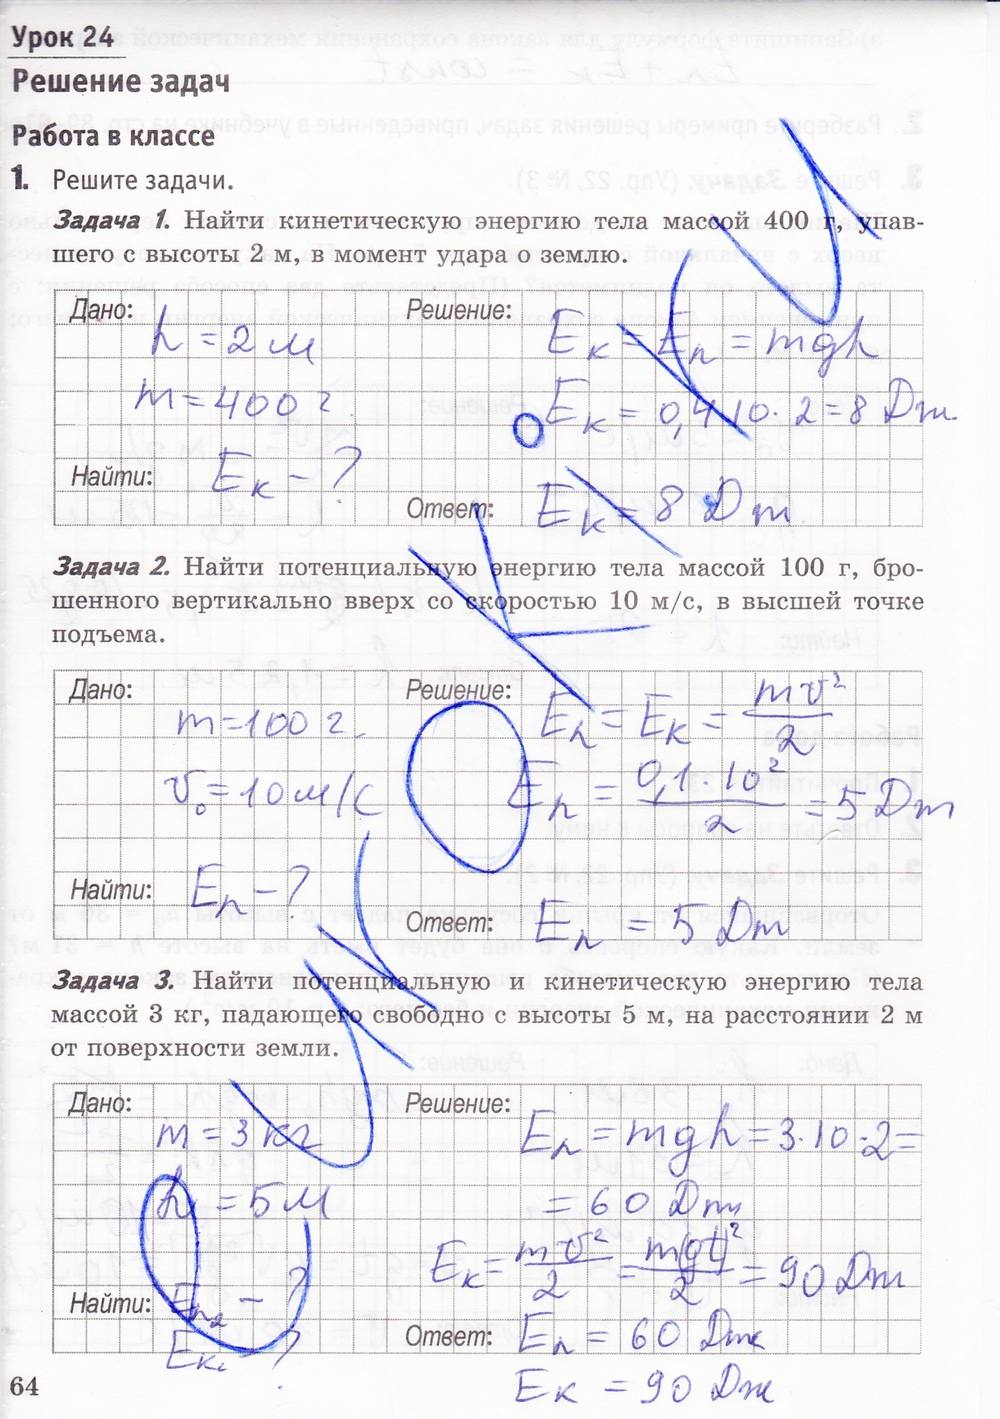 Урок 24
Решение задач
Работа в классе
1. Решите задачи.
Задача 1. Найти кинетическую энергию тела массой 400 г, упав-
шего с высоты 2 м, в момент удара о землю.
Дано:
h = 2 м
m = 400 г.
Найти: Eк – ?
Решение:
Eк = Eп = mgh
Eк = 0,4·10·2 = 8 Дж.
Ответ: Eк = 8 Дж
Задача 2. Найти потенциальную энергию тела массой 100 г, бро-
шенного вертикально вверх со скоростью 10 м/с, в высшей точке
подъема.
Дано:
m = 100 г.
v₀ = 10 м/с
Найти: Eп – ?
Решение:
Eп = Eк = mv²/2
Eп = 0,1·10²/2 = 5 Дж
Ответ: Eп = 5 Дж
Задача 3. Найти потенциальную и кинетическую энергию тела
массой 3 кг, падающего свободно с высоты 5 м, на расстоянии 2 м
от поверхности земли.
Дано:
m = 3 кг
h = 5 м
Найти: Eп₂ – ?
Eк – ?
Решение:
Eп = mgh = 3·10·2 =
= 60 Дж
Eк = mv²/2 = m(gt)²/2 = 90 Дж
Ответ: Eп = 60 Дж
Eк = 90 Дж
64